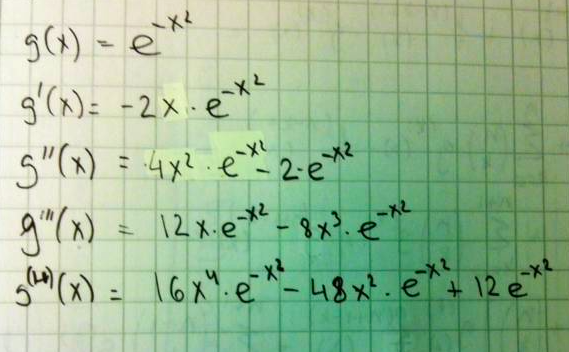 g(x) = e^{-x^2}
g'(x) = -2x · e^{-x^2}
g''(x) = 4x^2 · e^{-x^2} - 2 · e^{-x^2}
g'''(x) = 12x · e^{-x^2} - 8x^3 · e^{-x^2}
g^{(4)}(x) = 16x^4 · e^{-x^2} - 48x^2 · e^{-x^2} + 12e^{-x^2}